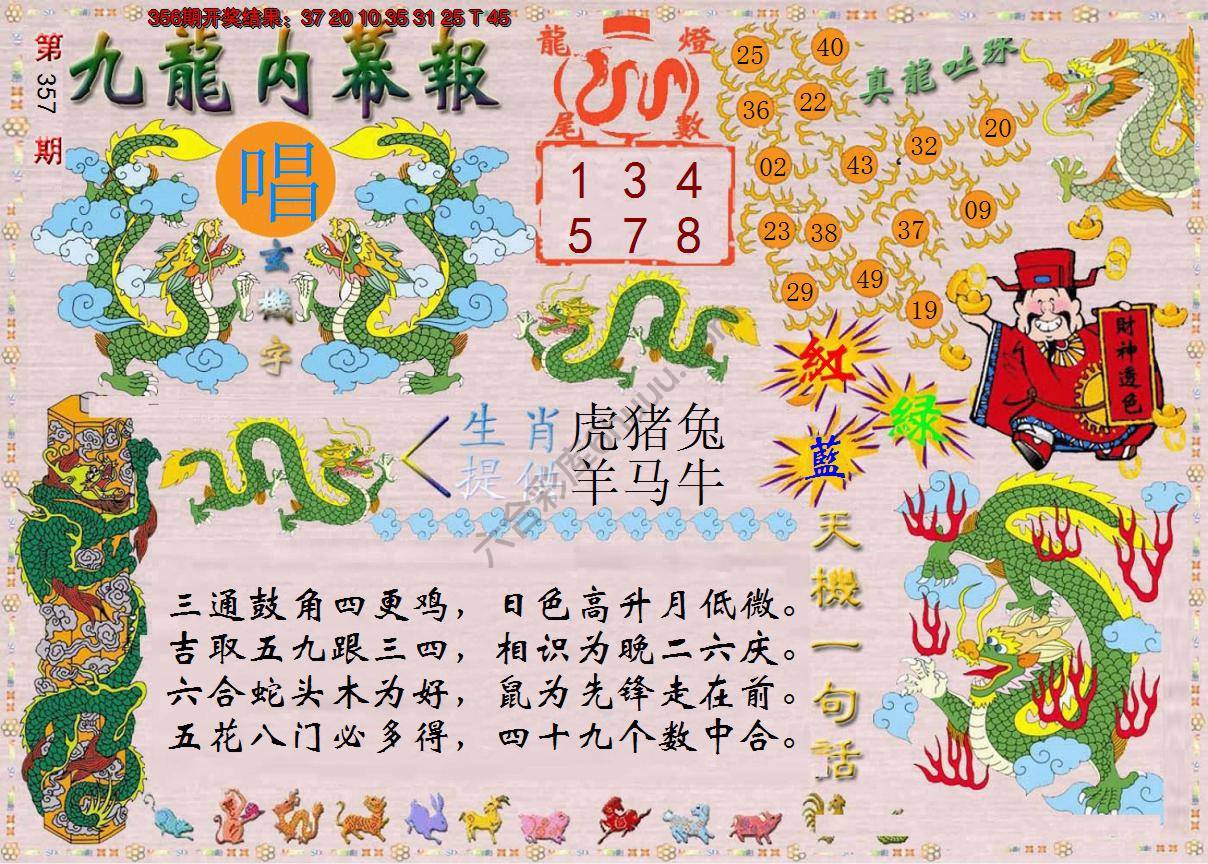 356期开奖结果：37 20 10 35 31 25 T 45
第
357
期
九龍内幕報
唱
玄
機
字
龍 燈
尾 數
1 3 4
5 7 8
真龍吐珠
25
40
36
22
02
43
32
20
23
38
37
09
29
49
19
紅
綠
藍
財神透色
生肖
提供
虎猪兔
羊马牛
三通鼓角四更鸡，日色高升月低微。
吉取五九跟三四，相识为晚二六庆。
六合蛇头木为好，鼠为先锋走在前。
五花八门必多得，四十九个数中合。
天機一句話